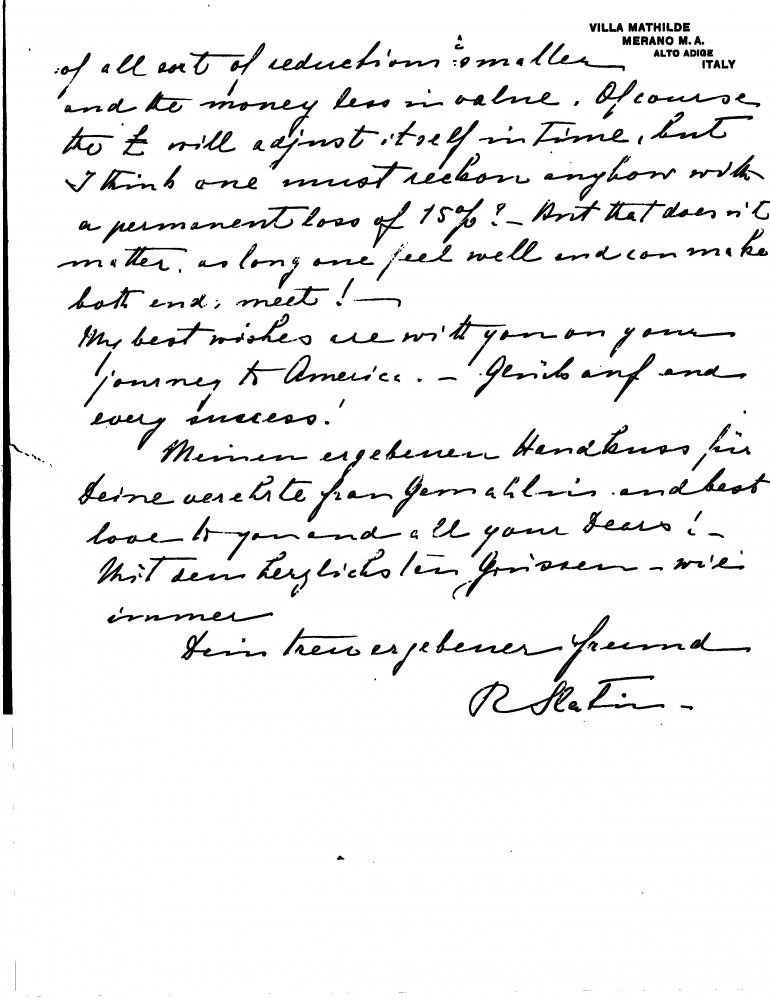 VILLA MATHILDE
MERANO M. A.
ALTO ADIGE
ITALY
of all sort of reductions smaller
and the money less in value. Of course
the £ will adjust itself in time, but
I think one must reckon anyhow with
a permanent loss of 15%? – But that does n't
matter, as long one feel well and can make
both ends meet! –
My best wishes are with you on your
journey to America. – Glück auf and
every success!
Meinen ergebenen Handkuss für
Deine verehrte Frau Gemahlin and best
love to you and all your Dears! –
Mit den herzlichsten Grüssen – wie
immer
Dein treuergebener Freund
R Slatin –